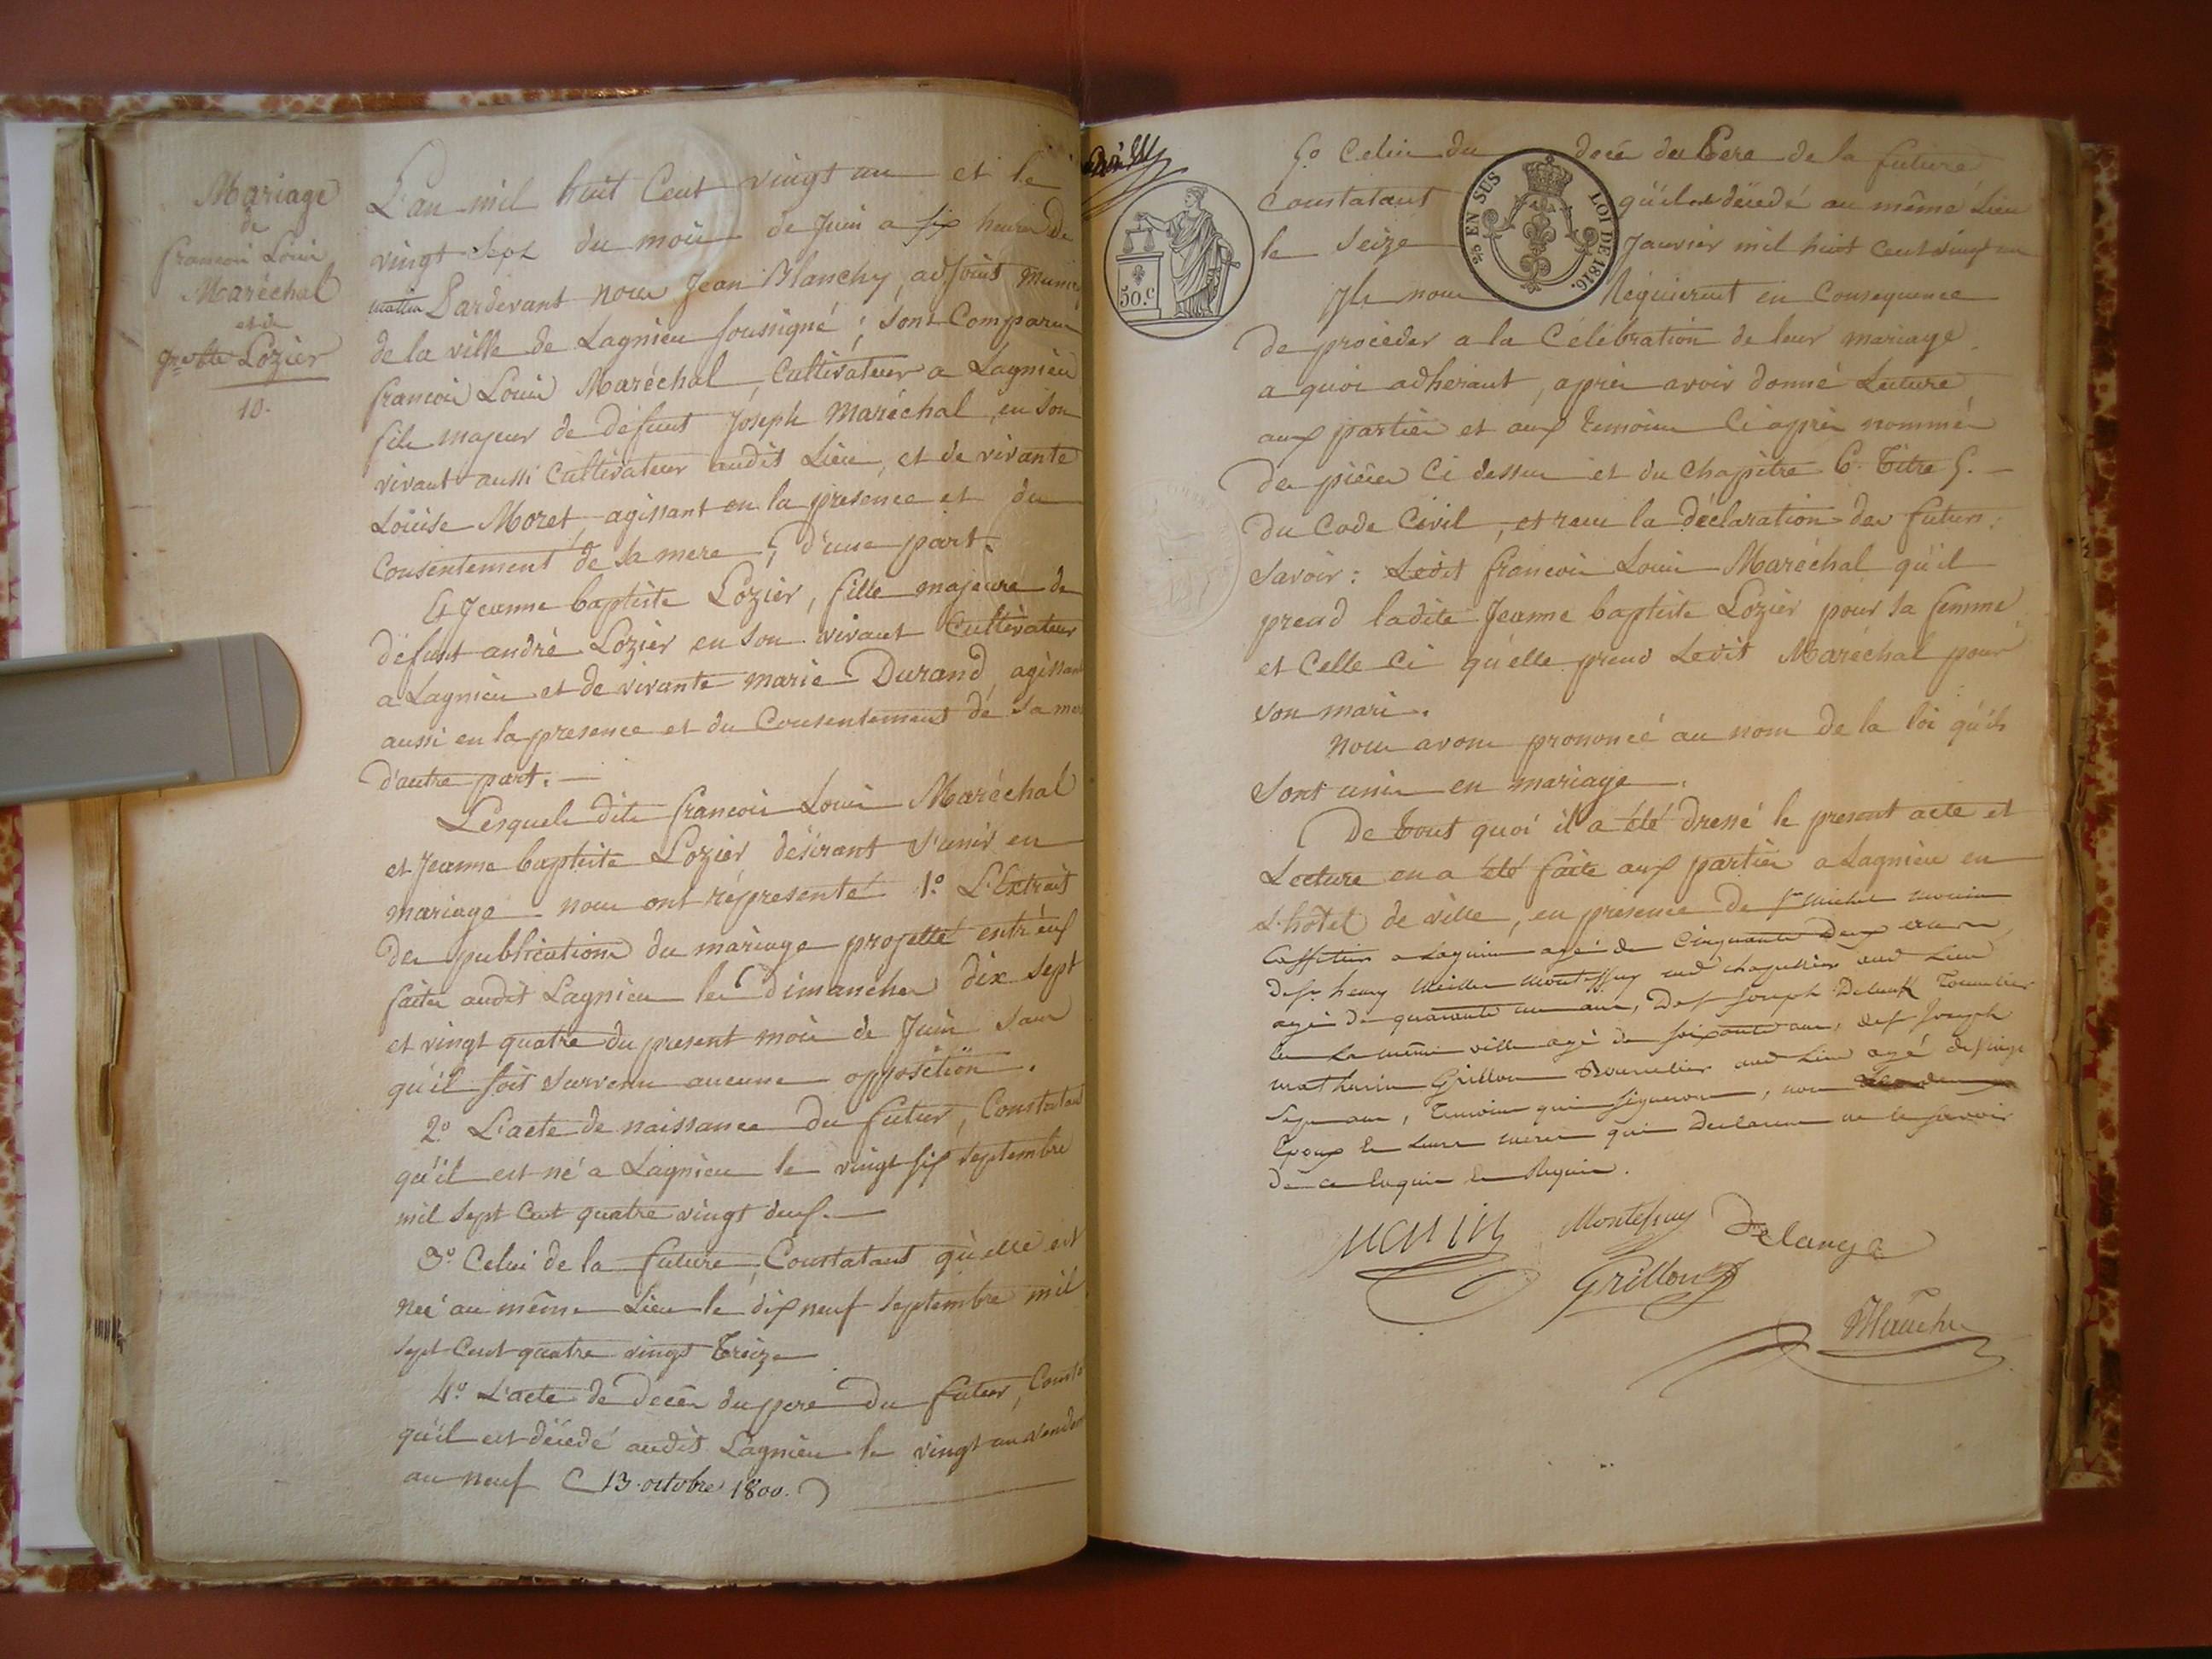 Mariage
de
francois Louis
Maréchal
et de
Jne bte Lozier
10.
L'an mil huit Cent vingt un et le
vingt Sept du mois de Juin a six heures du
matin Pardevant nous Jean Blanchy, adjoint
de la ville de Lagnieu soussigné; sont Comparus
francois Louis Maréchal, Cultivateur a Lagnieu
fils majeur de défunt Joseph Maréchal, en son
vivant aussi Cultivateur audit Lieu, et de vivante
Louise Moret, agissant en la presence et du
Consentement de sa mere, d'une part.
Et Jeanne baptiste Lozier, fille majeure de
défunt andré Lozier en son vivant Cultivateur
a Lagnieu et de vivante marie Durand, agissant
aussi en la presence et du Consentement de Sa
d'autre part.
Lesquels dits francois Louis Maréchal
et Jeanne baptiste Lozier, désirant s'unir en
mariage nous ont réprésenté 1.º L'Extrait
des publications du mariage projetté entr'eux
faites audit Lagnieu les Dimanches dix Sept
et vingt quatre du present mois de Juin Sans
qu'il soit Survenu aucune opposition.
2º L'acte de naissance du futur, Constatant
qu'il est né a Lagnieu le vingt six Septembre
mil Sept Cent quatre vingt deux.
3º Celui de la future, Constatant qu'elle est
née au même Lieu le dix neuf Septembre mil
Sept Cent quatre vingt Treize
4º L'acte de Décès du pere du futur,
qu'il est décédé audit Lagnieu le vingt un
an neuf (13 octobre 1800.)
50.c
2/5 EN SUS LOI DE 1816
5º Celui du décè du Pere de la future
Constatant qu'il est décédé au même Lieu
le Seize Janvier mil huit Cent vingt un
Ils nous Réquierent en Consequence
de procéder a la Célébration de leur mariage
a quoi adherant, après avoir donné Lecture
aux parties et aux temoins Ci après nommés
des pièces Ci dessus et du Chapitre 6. Titre 5.
du Code Civil, et recu la déclaration des futurs:
Savoir: Ledit francois Louis Maréchal qu'il
prend ladite Jeanne baptiste Lozier pour sa femme
et Celle Ci qu'elle prend Ledit Maréchal pour
son mari.
Nous avons prononcé au nom de la loi qu'ils
Sont unis en mariage.
De tout quoi il a été dressé le present acte et
Lecture en a été faite aux parties a Lagnieu en
L'hotel de ville, en presence de Sr michel monin
Caffetier a Lagnieu agé de Cinquante Deux ans,
De Sr henry Montessuy aud chapellier aud Lieu
agé de quarante un ans, De Sr Joseph tonnelier
en La même ville agé de soixante ans, de Sr Joseph
mathurin Grillon aud Lieu agé de vingt
Sept ans, Temoins qui signeront, non
Epoux et Leurs meres qui Declarent ne le savoir
de ce Enquis et Requis.
Monin Montessuy Delange
Grillon
Blanchy